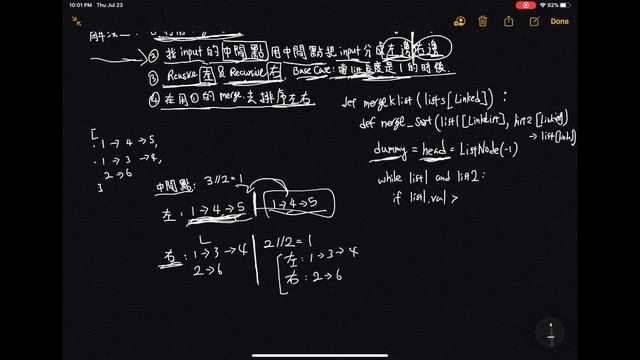 10:01 PM Thu Jul 23
62%
Done
② 找 input 的 中間點 用中間點把 input 分成 左邊 右邊
③ Recusive 左 & Recursive 右. Base Case: 當 list 長度是 1 的時候.
④ 在用①的 merge 去排序左右
def mergeklist (lists [Linked]) :
def merge_sort (list1 [LinkList], list2 [
dummy = head = ListNode(-1)
while list1 and list2 :
if list1.val >
[
· 1 → 4 → 5,
· 1 → 3 → 4,
2 → 6
]
中間點 : 3 // 2 = 1
左 : 1 → 4 → 5
1 → 4 → 5
右 : 1 → 3 → 4
2 → 6
2 // 2 = 1
左 : 1 → 3 → 4
右 : 2 → 6